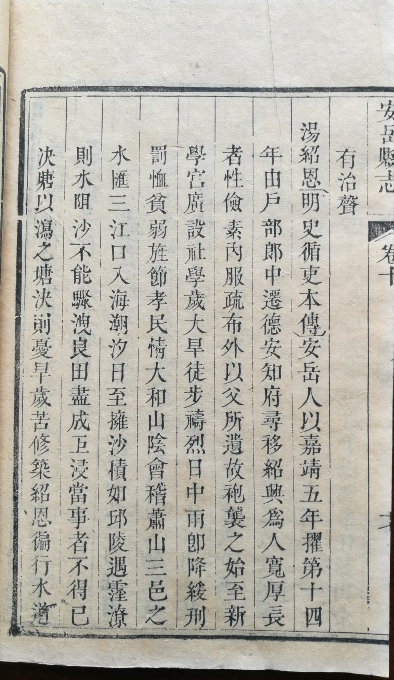 安岳縣志
卷十
有治聲
湯紹恩明史循吏本傳安岳人以嘉靖五年擢第十四
年由戶部郎中遷德安知府尋移紹興爲人寬厚長
者性儉素內服疏布外以父所遺故袍襲之始至新
學宮廣設社學歲大旱徒步禱烈日中雨卽降緩刑
罰恤貧弱旌節孝民情大和山陰會稽蕭山三邑之
水匯三江口入海潮汐日至擁沙積如邱陵遇霪潦
則水阻沙不能驟洩良田盡成巨浸當事者不得已
決塘以瀉之塘決則憂旱歲苦修築紹恩徧行水道